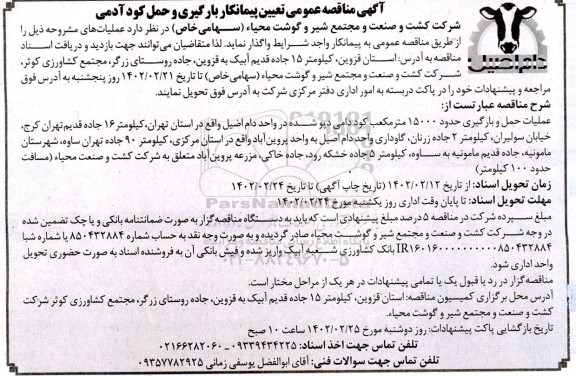 آگهی مناقصه عمومی تعیین پیمانکار بارگیری و حمل کود آدمی
شرکت کشت و صنعت و مجتمع شیر و گوشت محیاء (سهامی خاص) در نظر دارد عملیات‌های مشروحه ذیل را
از طریق مناقصه عمومی به پیمانکار واجد شرایط واگذار نماید. لذا متقاضیان می‌توانند جهت بازدید و دریافت اسناد
مناقصه به آدرس: استان قزوین، کیلومتر ۱۵ جاده قدیم آبیک به قزوین، جاده روستای زرگر، مجتمع کشاورزی کوثر،
شرکت کشت و صنعت و مجتمع شیر و گوشت محیاء (سهامی خاص) تا تاریخ ۱۴۰۲/۰۲/۲۱ روز پنجشنبه به آدرس فوق
مراجعه و پیشنهادات خود را در پاکت دربسته به امور اداری دفتر مرکزی شرکت به آدرس فوق تحویل نمایند.
دام اصیل
شرح مناقصه عبارتست از:
عملیات حمل و بارگیری حدود ۱۵۰۰۰ مترمکعب کود دامی دپو شده در واحد دام اصیل واقع در استان تهران، کیلومتر ۱۶ جاده قدیم تهران کرج،
خیابان سولیران، کیلومتر ۲ جاده زرنان، گاوداری واحد دام اصیل به واحد پروین آباد واقع در استان مرکزی، کیلومتر ۹۰ جاده تهران ساوه، شهرستان
مامونیه، جاده قدیم مامونیه به ساوه، کیلومتر ۵ جاده خشکه رود، جاده خاکی، مزرعه پروین آباد متعلق به شرکت کشت و صنعت محیاء (مسافت
حدود ۱۰۰ کیلومتر)
زمان تحویل اسناد: از تاریخ ۱۴۰۲/۰۲/۱۲ (تاریخ چاپ آگهی) تا تاریخ ۱۴۰۲/۰۲/۲۴
مهلت تحویل اسناد: تا پایان وقت اداری روز یکشنبه مورخ ۱۴۰۲/۰۲/۲۴
مبلغ سپرده شرکت در مناقصه ۵ درصد مبلغ پیشنهادی است که باید به دستگاه مناقصه گزار به صورت ضمانتنامه بانکی و یا چک تضمین شده
در وجه شرکت کشت و صنعت و مجتمع شیر و گوشت محیاء صادر گردیده و به صورت وجه نقد به حساب شماره ۸۵۰۴۳۲۸۸۴ یا شماره شبا
IR۱۶۰۱۶۰۰۰۰۰۰۰۰۰۰۰۸۵۰۴۳۲۸۸۴ بانک کشاورزی شعبه آبیک واریز شده و فیش بانکی آن به فروشنده اسناد به صورت حضوری تحویل
واحد اداری شود.
مناقصه‌گزار در رد یا قبول یک یا تمامی پیشنهادات در هر یک از مراحل مختار است.
آدرس محل برگزاری کمیسیون مناقصه: استان قزوین، کیلومتر ۱۵ جاده قدیم آبیک به قزوین، جاده روستای زرگر، مجتمع کشاورزی کوثر شرکت
کشت و صنعت و مجتمع شیر و گوشت محیاء.
تاریخ بازگشایی پاکت پیشنهادات: روز دوشنبه مورخ ۱۴۰۲/۰۲/۲۵ ساعت ۱۰ صبح
تلفن تماس جهت اخذ اسناد: ۰۹۳۳۹۴۳۴۲۲۵ – ۰۲۱۶۶۲۸۲۰۶۰
تلفن تماس جهت سوالات فنی: آقای ابوالفضل یوسفی زمانی ۰۹۳۵۷۷۸۲۹۲۵